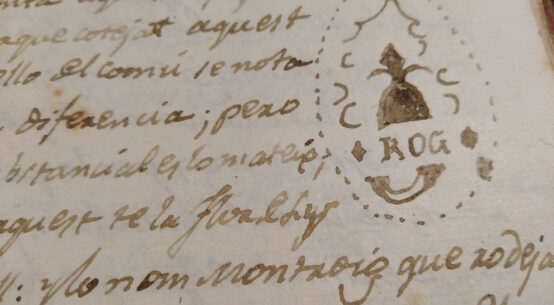 aquest
aque cotejat aquest
ello del comú se nota
diferencia; pero
substancial es lo mateix;
aquest te la flor Llys
y lo nom Montroig que rodeja
ROG